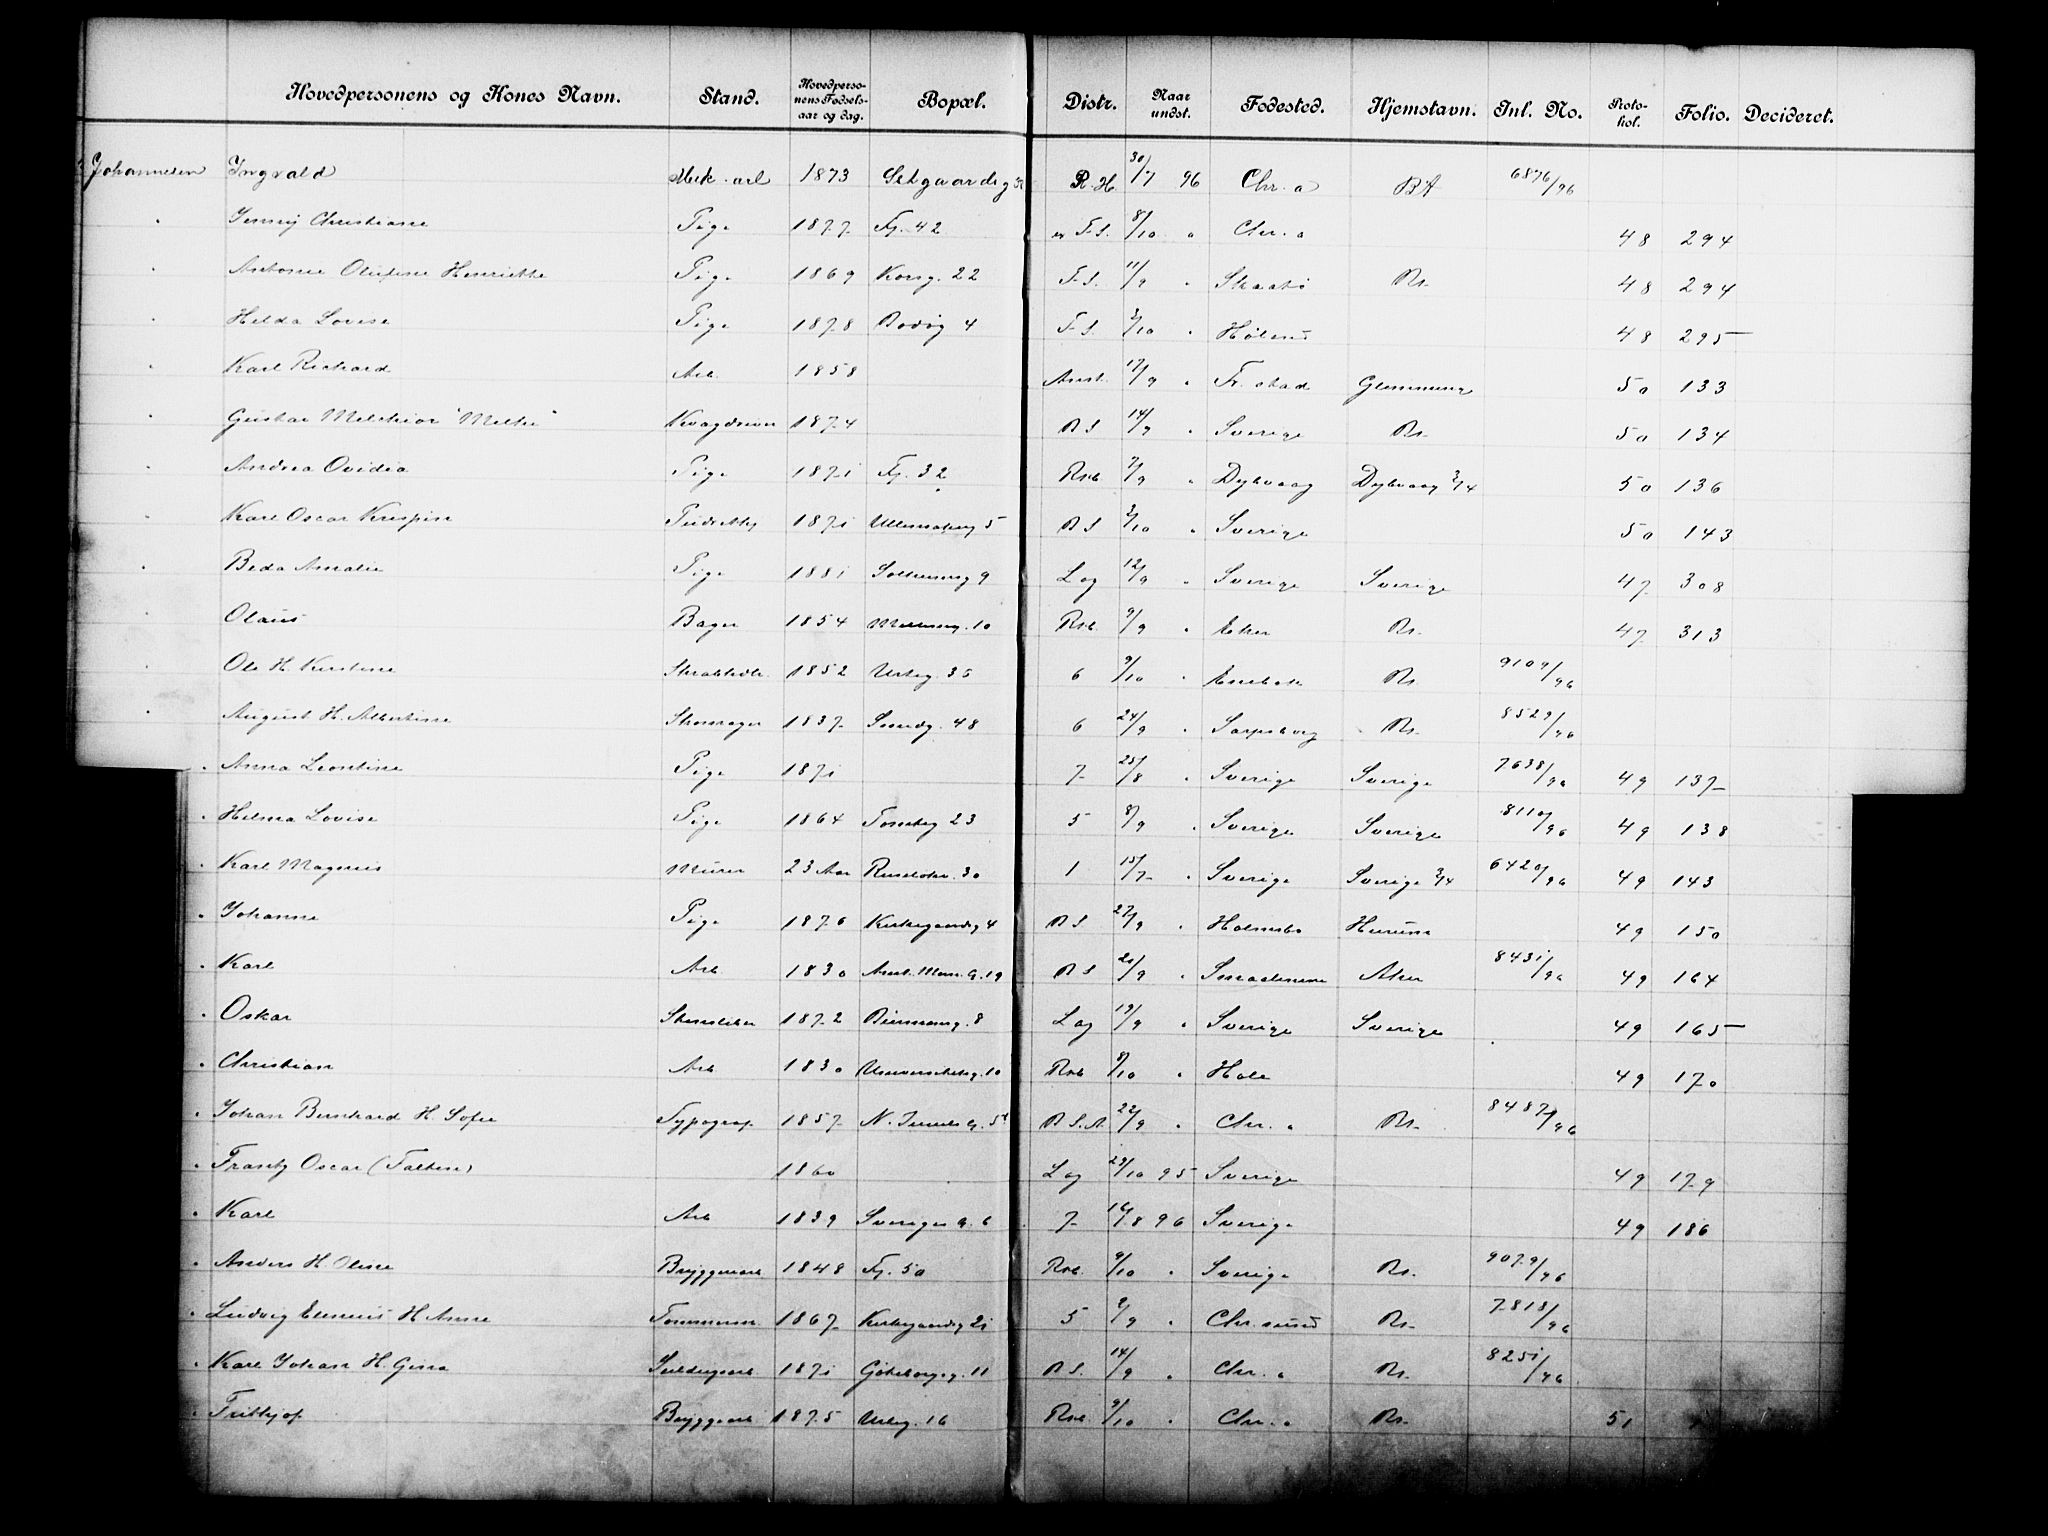 Hovedpersonens og Kones Navn. Stand. Hovedpersonens Fødselsaar og dag. Bopæl. Distr. Naar undst. Fødested. Hjemstavn. Inl. No. Protokol. Folio. Decideret.
Johannesen Ingvald Mek. arb 1873 R.H. 30/7 96 Chr.a 6876/96
" Jenny Christiane Pige 1877 Fj. 42 F.S. 8/10 " Chr.a 48 294
" Antonie Olufine Henriette Pige 1869 Korsg. 22 F.S. 11/9 " Skaatø Kr. 48 294
" Hilda Lovise Pige 1878 4 F.S. 2/10 " Høland 48 295
" Karl Richard Arb. 1858 Anst. 17/9 " Fr.stad Glemminge 50 133
" Gustav Melchior "Melke" 1874 B S 14/9 " Sverige Kr. 50 134
" Andrea Ovidia Pige 1871 Fj. 32 Rvb 7/9 " Dybvaag Dybvaag 3/4 50 136
" Karl Oscar Krispin 1871 5 B S 2/10 " Sverige 50 143
" Beda Amalie Pige 1881 9 Log 12/9 " Sverige Sverige 47 308
" Olaus Bager 1854 10 Rvb. 9/9 " Aker Kr. 47 313
" Ole H. Kirstine 1852 Urteg. 35 6 9/10 " Enebak Kr. 9109/96
" August H. Albertine Skomager 1837 Smedg. 48 6 24/9 " Sarpsborg Kr. 8529/96
" Anna Leontine Pige 1871 7 25/8 " Sverige Sverige 7638/96 49 137
" Helma Lovise Pige 1864 Tomteg 23 5 8/9 " Sverige Sverige 8110/96 49 138
" Karl Magnus Murer 23 Aar Ruseløkv. 30 1 15/7 " Sverige Sverige 3/4 6420/96 49 143
" Johanne Pige 1876 Kirkegaardsg 4 B S 27/9 " Holmsbo Hurum 49 150
" Karl Arb 1830 19 B S 21/9 " Smaalenene Aker 8431/96 49 164
" Oskar 1872 8 Log 19/9 " Sverige Sverige 49 165
" Christian Arb 1830 Universitetsg. 10 Rvb 8/10 " Hole 49 170
" Johan Bernhard H. Sofie Typograf 1857 B.S.A. 22/9 " Chr.a Kr. 8487/96
" Frantz Oscar (Falken) 1860 Log 29/10 95 Sverige 49 179
" Karl Arb 1839 Sveriges G. 6 7 16/8 96 Sverige 49 186
" Anders H. Oline Bryggerarb 1848 Fj. 50 Rvb. 9/10 " Sverige Kr. 9079/96
" Ludvig H Anne Tømmerm. 1867 Kirkegaardsg 21 5 2/9 " Chr.sund Kr. 7818/96
" Karl Johan H. Gina 1871 Göteborgsg. 11 B S. 14/9 " Chr.a Kr. 8251/96
" Frithjof Bryggearb 1875 Urteg. 16 Rvb. 9/10 " Chr.a Kr. 51